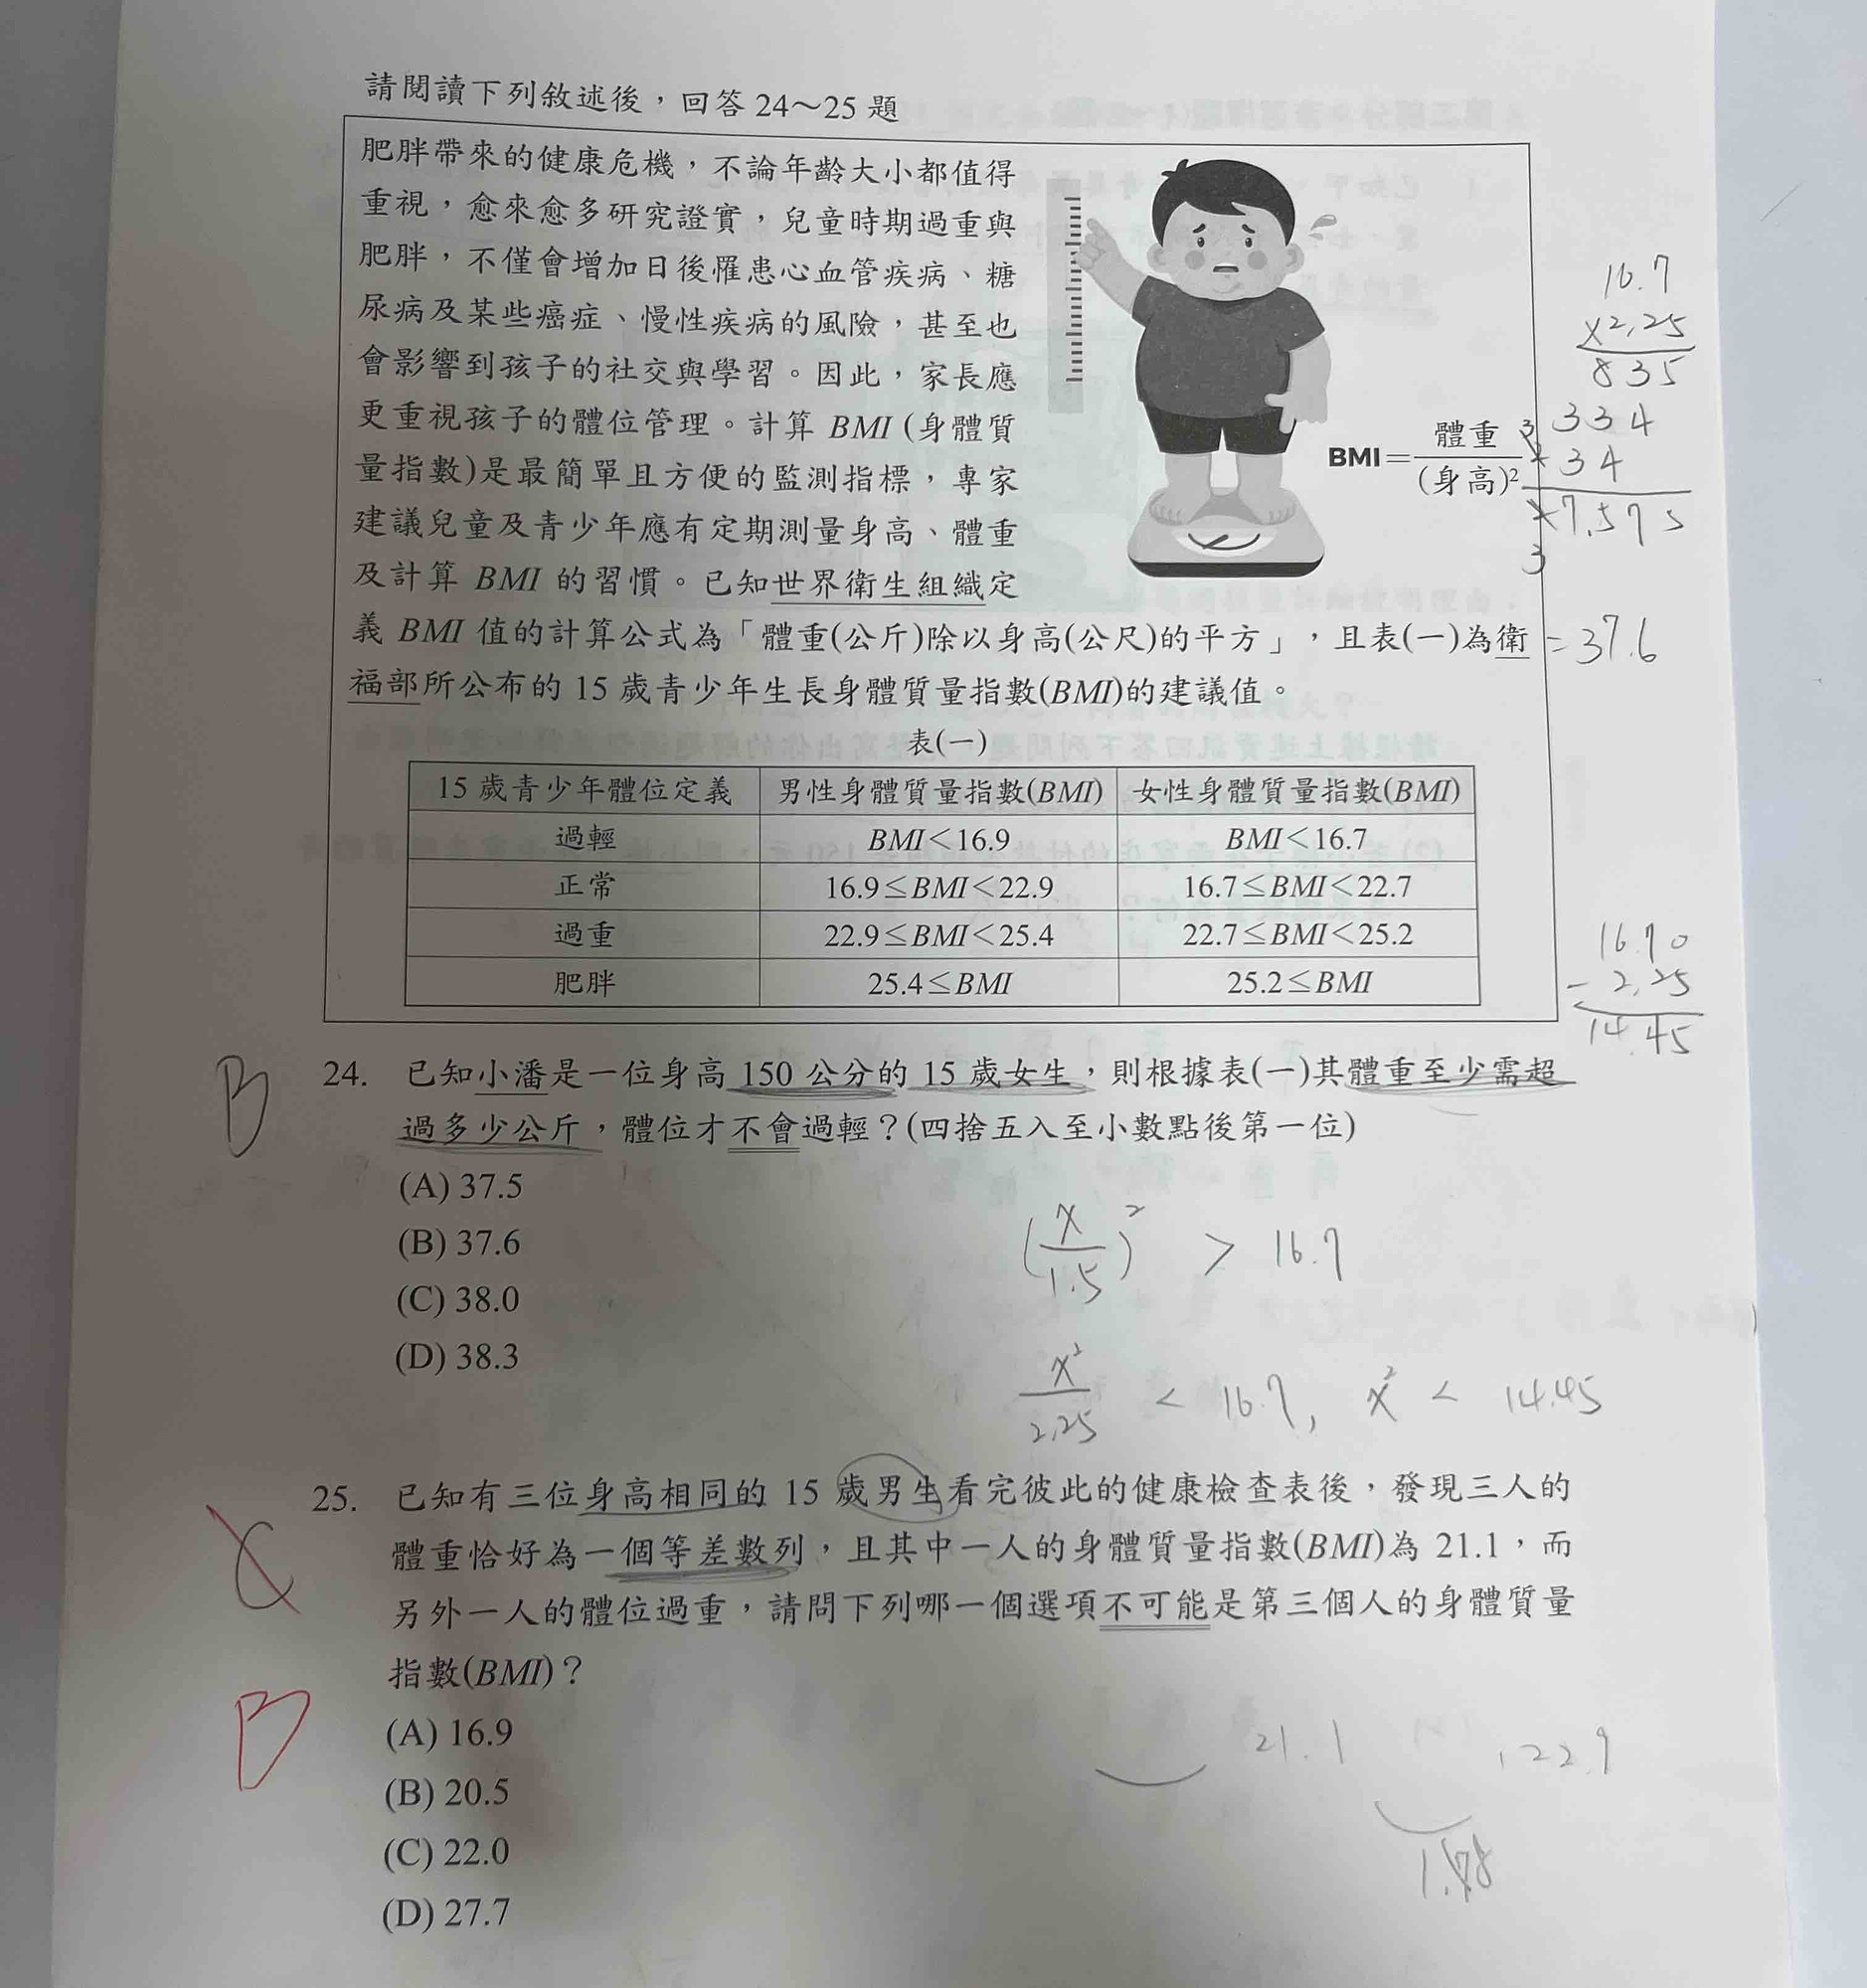 請閱讀下列敘述後，回答 24～25 題
肥胖帶來的健康危機，不論年齡大小都值得
重視，愈來愈多研究證實，兒童時期過重與
肥胖，不僅會增加日後罹患心血管疾病、糖
尿病及某些癌症、慢性疾病的風險，甚至也
會影響到孩子的社交與學習。因此，家長應
更重視孩子的體位管理。計算 BMI (身體質
量指數)是最簡單且方便的監測指標，專家
建議兒童及青少年應有定期測量身高、體重
及計算 BMI 的習慣。已知世界衛生組織定
義 BMI 值的計算公式為「體重(公斤)除以身高(公尺)的平方」，且表(一)為衛
福部所公布的 15 歲青少年生長身體質量指數(BMI)的建議值。
BMI=體重/(身高)²
16.7
×2.25
835
334
34
37.575
=37.6
表(一)
15 歲青少年體位定義 男性身體質量指數(BMI) 女性身體質量指數(BMI)
過輕 BMI＜16.9 BMI＜16.7
正常 16.9≤BMI＜22.9 16.7≤BMI＜22.7
過重 22.9≤BMI＜25.4 22.7≤BMI＜25.2
肥胖 25.4≤BMI 25.2≤BMI
16.70
- 2.25
14.45
B
24. 已知小潘是一位身高 150 公分的 15 歲女生，則根據表(一)其體重至少需超
過多少公斤，體位才不會過輕？(四捨五入至小數點後第一位)
(A) 37.5
(B) 37.6
(C) 38.0
(D) 38.3
(x/1.5)² > 16.7
x²/2.25 < 16.7, x² < 14.45
C
B
25. 已知有三位身高相同的 15 歲男生看完彼此的健康檢查表後，發現三人的
體重恰好為一個等差數列，且其中一人的身體質量指數(BMI)為 21.1，而
另外一人的體位過重，請問下列哪一個選項不可能是第三個人的身體質量
指數(BMI)？
(A) 16.9
(B) 20.5
(C) 22.0
(D) 27.7
21.1
22.9